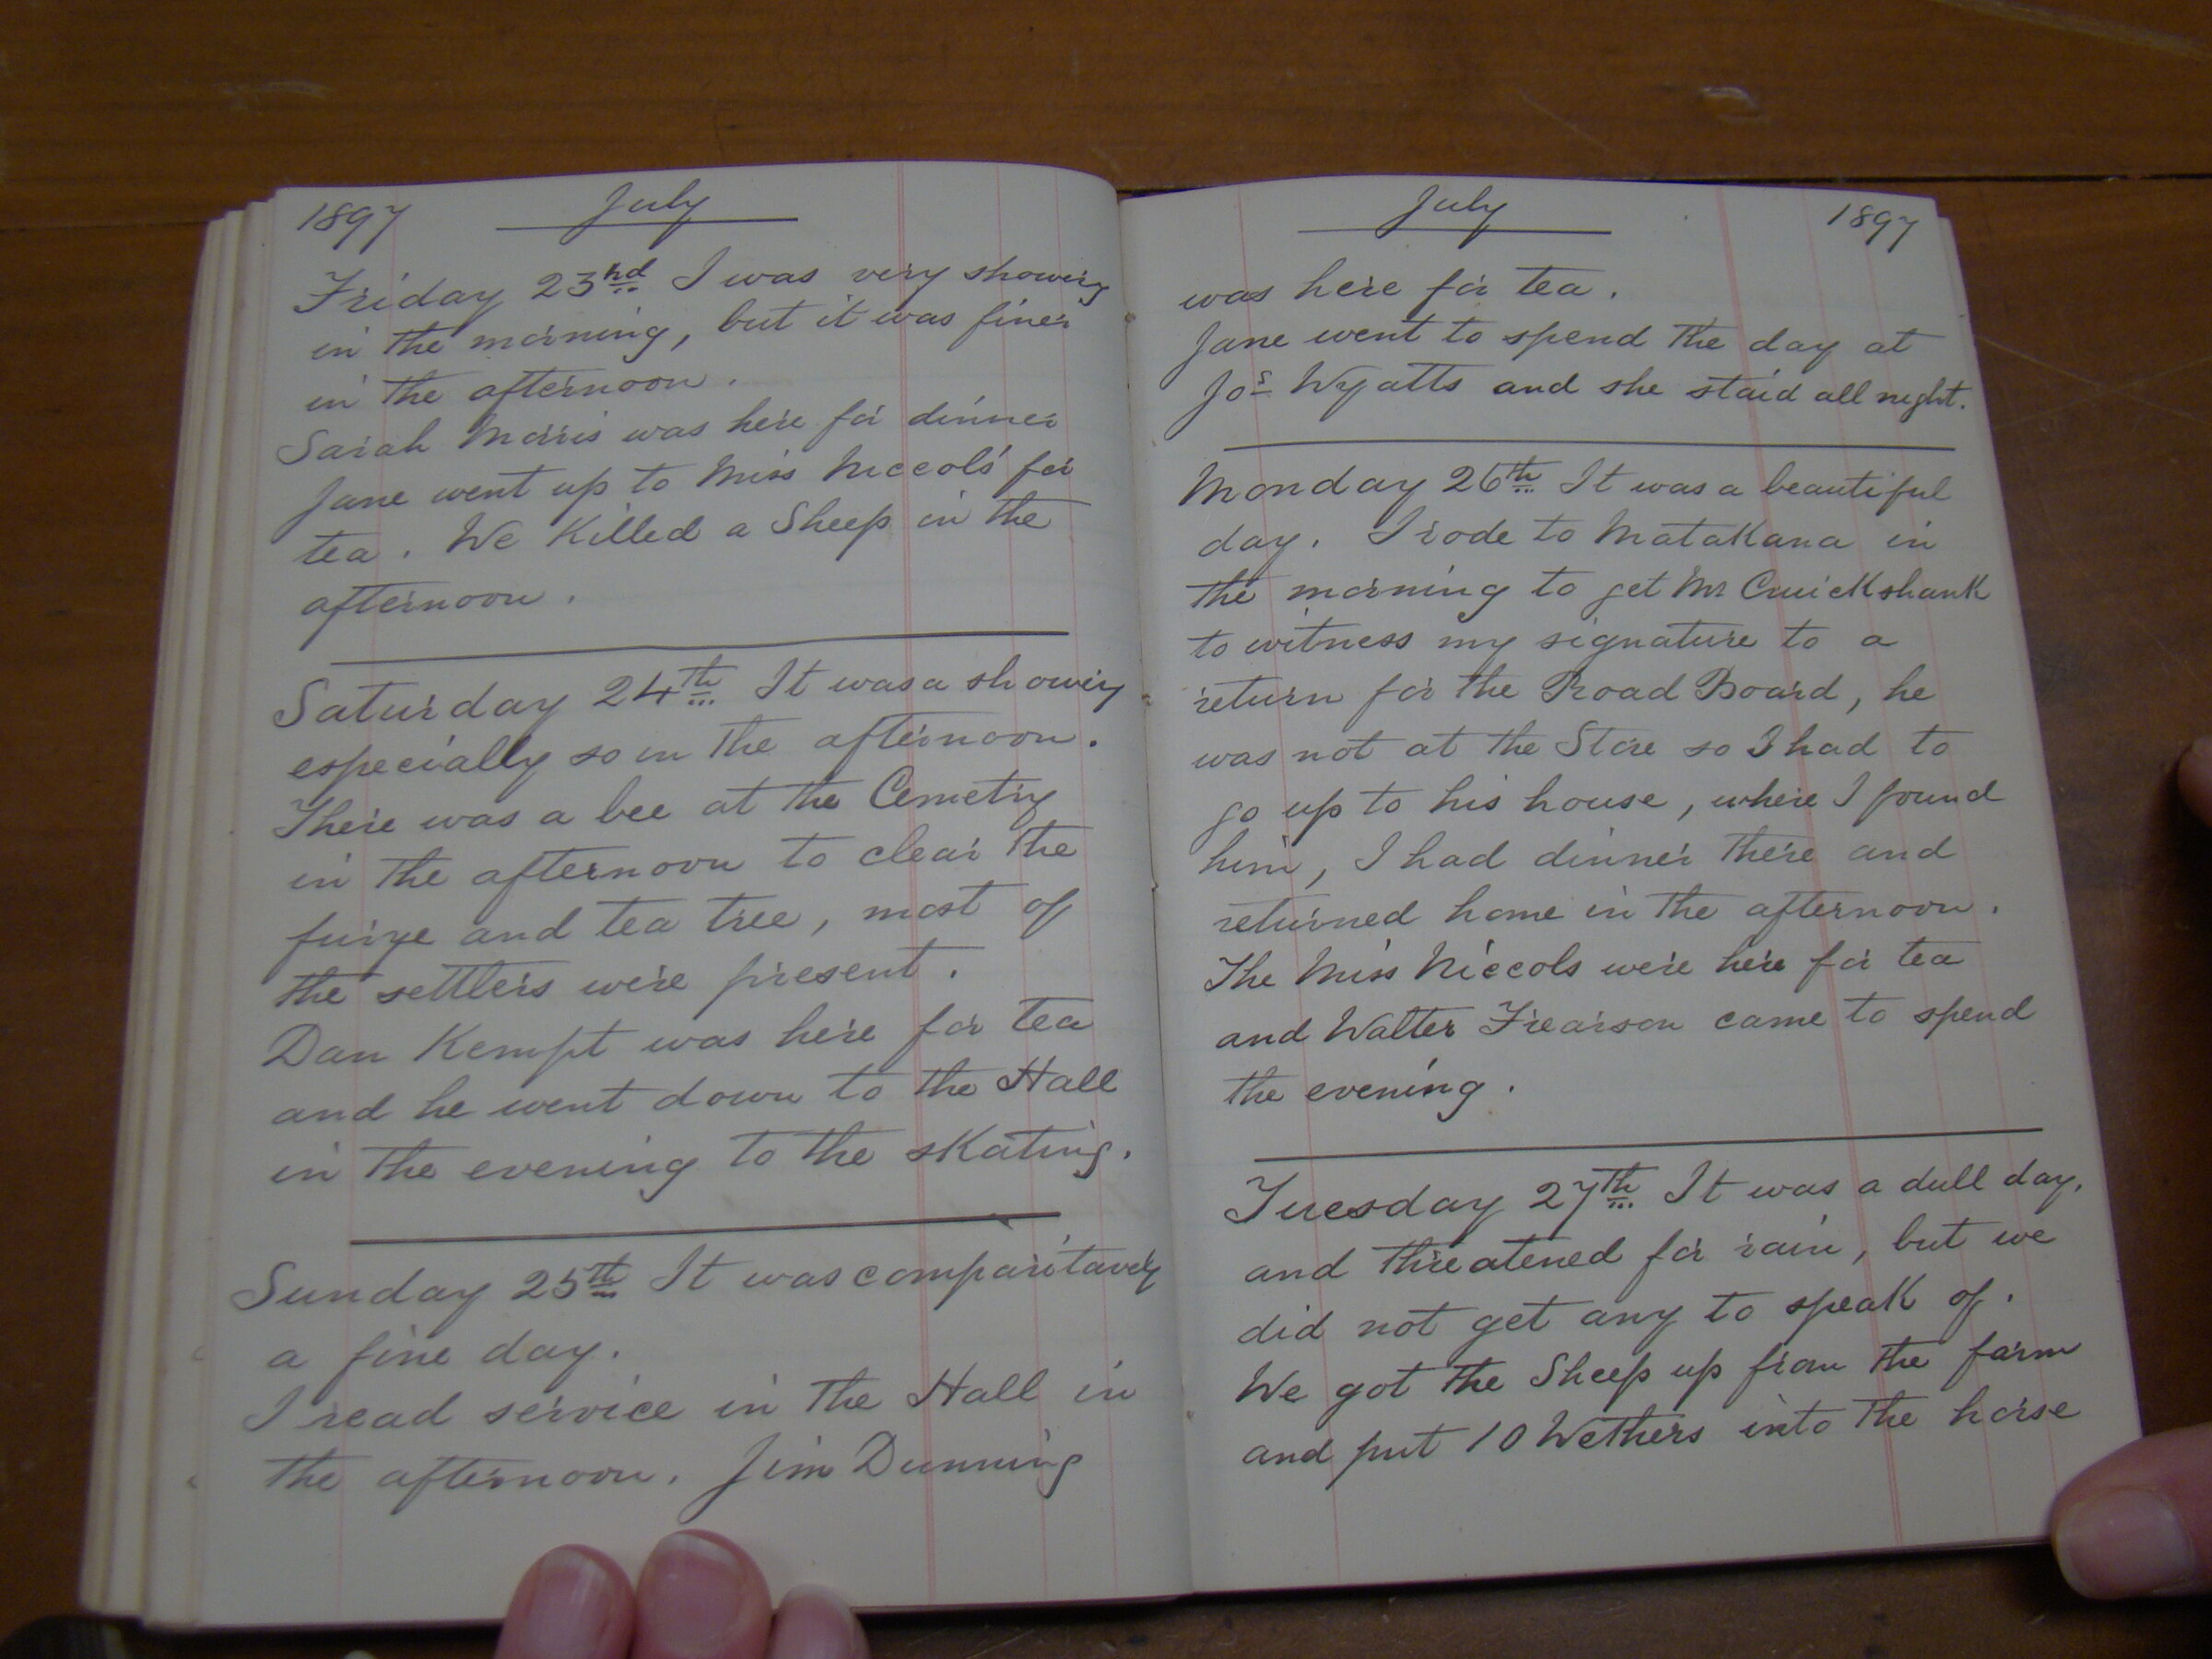 1897 July
Friday 23rd I was very showery
in the morning, but it was finer
in the afternoon.
Sarah Morris was here for dinner
Jane went up to Miss Niccols' for
tea. We Killed a Sheep in the
afternoon.
Saturday 24th It was a showery
especially so in the afternoon.
There was a bee at the Cemetry
in the afternoon to clear the
furze and tea tree, most of
the settlers were present.
Dan Kempt was here for tea
and he went down to the Hall
in the evening to the skating.
Sunday 25th It was comparitavely
a fine day.
I read service in the Hall in
the afternoon. Jim Dunning
July 1897
was here for tea.
Jane went to spend the day at
Jos Wyatts and she staid all night.
Monday 26th It was a beautiful
day. I rode to Matakana in
the morning to get Mr Cruickshank
to witness my signature to a
return for the Road Board, he
was not at the Store so I had to
go up to his house, where I found
him, I had dinner there and
returned home in the afternoon.
The Miss Niccols were here for tea
and Walter Frearson came to spend
the evening.
Tuesday 27th It was a dull day,
and threatened for rain, but we
did not get any to speak of.
We got the Sheep up from the farm
and put 10 Wethers into the horse